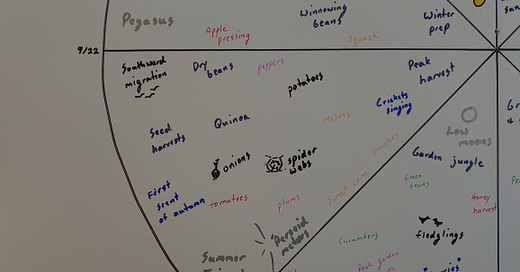 Pegasus
Apple
pressing
Winnowing
beans
Squash
Winter
prep
9/22
Southward
migration
Dry
beans
peppers
potatoes
Peak
harvest
Crickets
singing
Seed
harvests
Quinoa
Melons
peaches
Low
moons
Garden
jungle
onions
spider
webs
First
scent
of autumn
tomatoes
plums
Sweet corn
Green
beans
Honey
harvest
fledglings
Perseid
meteors
Cucumbers
Summer
Peak garden